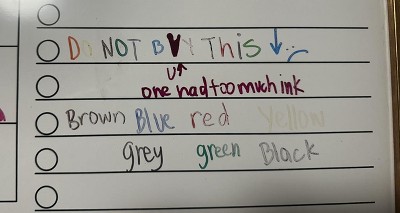 DO NOT BUY This ↓
U↑
one had too much ink
Brown Blue red Yellow
grey green Black